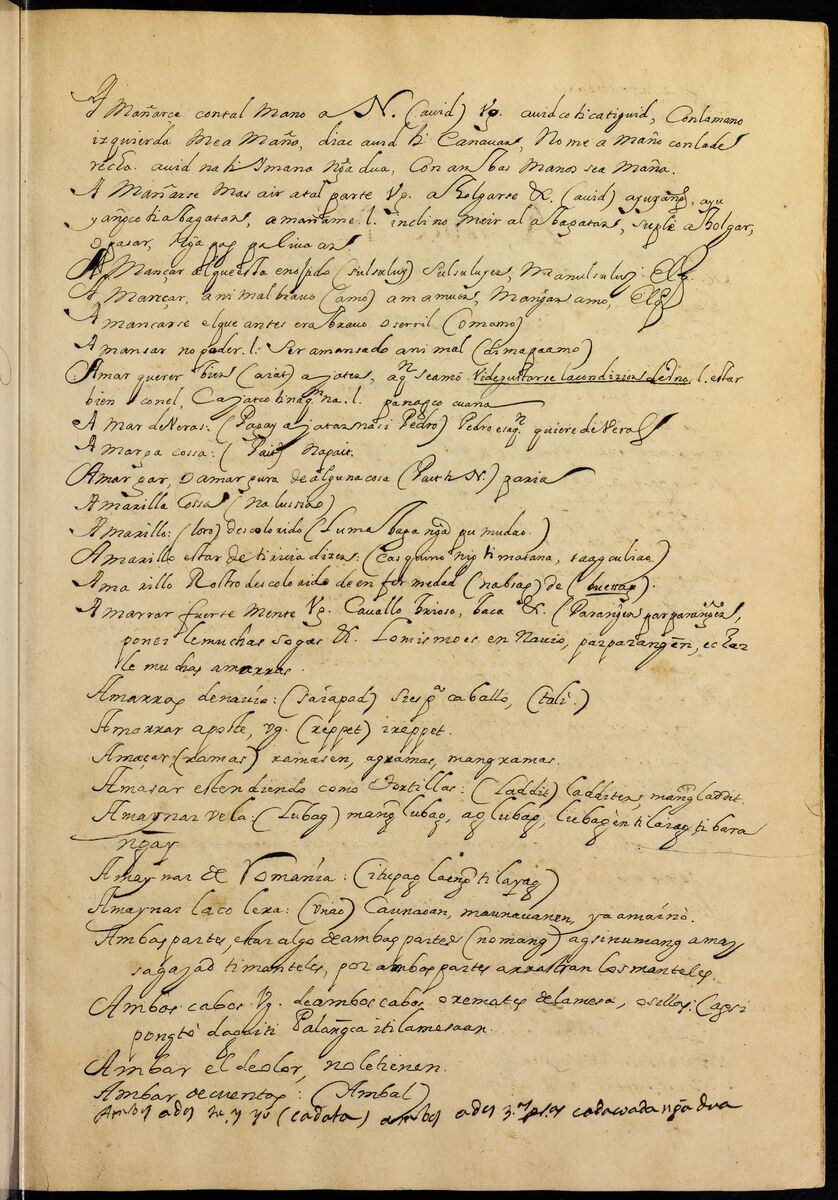 A Mañarce con tal Mano a N. (avid) Vg. avid co ti catiguid, Con la mano
izquierda Me a Maño, diac avid ti Canavan, No me a maño con la de
recha. avid na ti Imana ngã dua, Con ambas Manos sea Maña.
A Mañarse Mas air a tal parte Vg. a holgarse &. (avid)
a mañame .l. inclino me ir al a suple a holgar,
o pasar,
A Mançar al que esta enojado (sulsuluy) sulsuluyen, Manulsuluy. Elq.
A Mançar, animal bravo (amo) amamuen, Mangan amo, Elq
Amançarse el que antes era bravo o serril (omamo)
Amansar no poder .l. ser amansado animal (di mapaamo)
Amar querer bien (aiat) a jaten, aqn se amo. Vide gustarse la condizion de Vno .l. estar
bien con el, .l. panagco cuana
A Mar de Veras: (Papay a jatan na si Pedro) Pedro es aqn quiere de Veras
A marga cossa: (Pait) Napait.
Amargar, o amargura de alguna cosa (Pait ti N.) paria
Amarilla Cossa (na lussiao)
Amarillo: (loro) descolorido (Luma baga ngã pu mudao.)
Amarillo estar de tiricia dizen: ti matana,
Amarillo Rostro descolorido de enfermedad (nabsag) de (bussag).
Amarrar fuerte mente Vg. Cavallo brioso, baca &. (Parangen parparangen,
poner le muchas sogas &. Lo mismo es en Navio, parparangen, echar
le muchas amarras.
Amarras de navio: (saiapad) si es pa caballo, (tali.)
Amarrar aposte, vg. (reppet) ireppet.
Amaçar: (ramas) ramasen, agramas, mangramas.
Amasar estendiendo como Tortillas: (Laddit) ladditen, mang laddit.
Amaynar vela: (Lubag) mang lubag, ag lubag, lubagen ti larag ti bara
ngay
Amaynar de Romanía: (itupag ti layag)
Amaynar la colera: (Vnao) Caunaoan, maunavanen, ya amainò.
Ambas partes, estar algo de ambas partes (nomang) agsinumang a may
sagajad ti manteles, por ambas partes arrastran los manteles.
Ambos cabos Vg. de ambos cabos o remates de la mesa, o sillas: Cagsi
pongtò daguiti Palangca iti lamesaan.
Ambar el de olor, no le tienen.
Ambar de cuentas: (Ambal)
Ambos ados tu, y yo (cadata) ambos ados 3.as ps.as cadacuada ngã dua